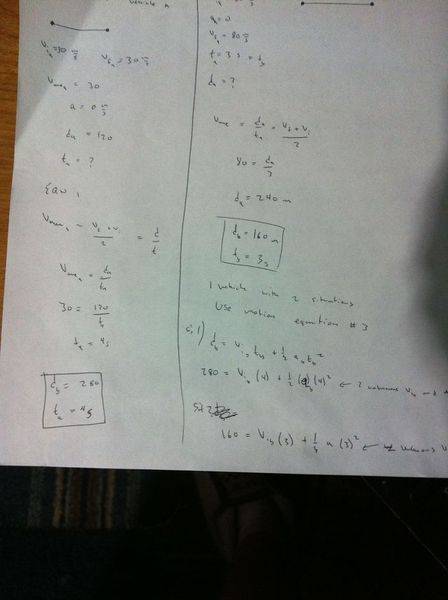 vehicle a
Viₐ = 30 m/s Vfₐ = 30 m/s
Vaveₐ = 30
a = 0 m/s
dₐ = 120
tₐ = ?
Eqn 1
Vaveₐ = Vf + Vi / 2 = d / t
Vaveₐ = dₐ / tₐ
30 = 120 / tₐ
tₐ = 4s
d_b = 280
tₐ = 4s
a = 0
Vfₐ = 80 m/s
tₐ = 3 s = t_b
dₐ = ?
Vave = dₐ / tₐ = Vf + Vi / 2
80 = dₐ / 3
dₐ = 240 m
d_b = 160 m
t_b = 3s
1 vehicle with 2 situations
Use motion equation #3
S1) d_b = Vi_b t_b + 1/2 a_b t_b²
280 = Vi_b (4) + 1/2 (a)_b (4)² ← 2 unknowns Vi_b
S2
160 = Vi_b (3) + 1/2 a (3)² ← unknowns